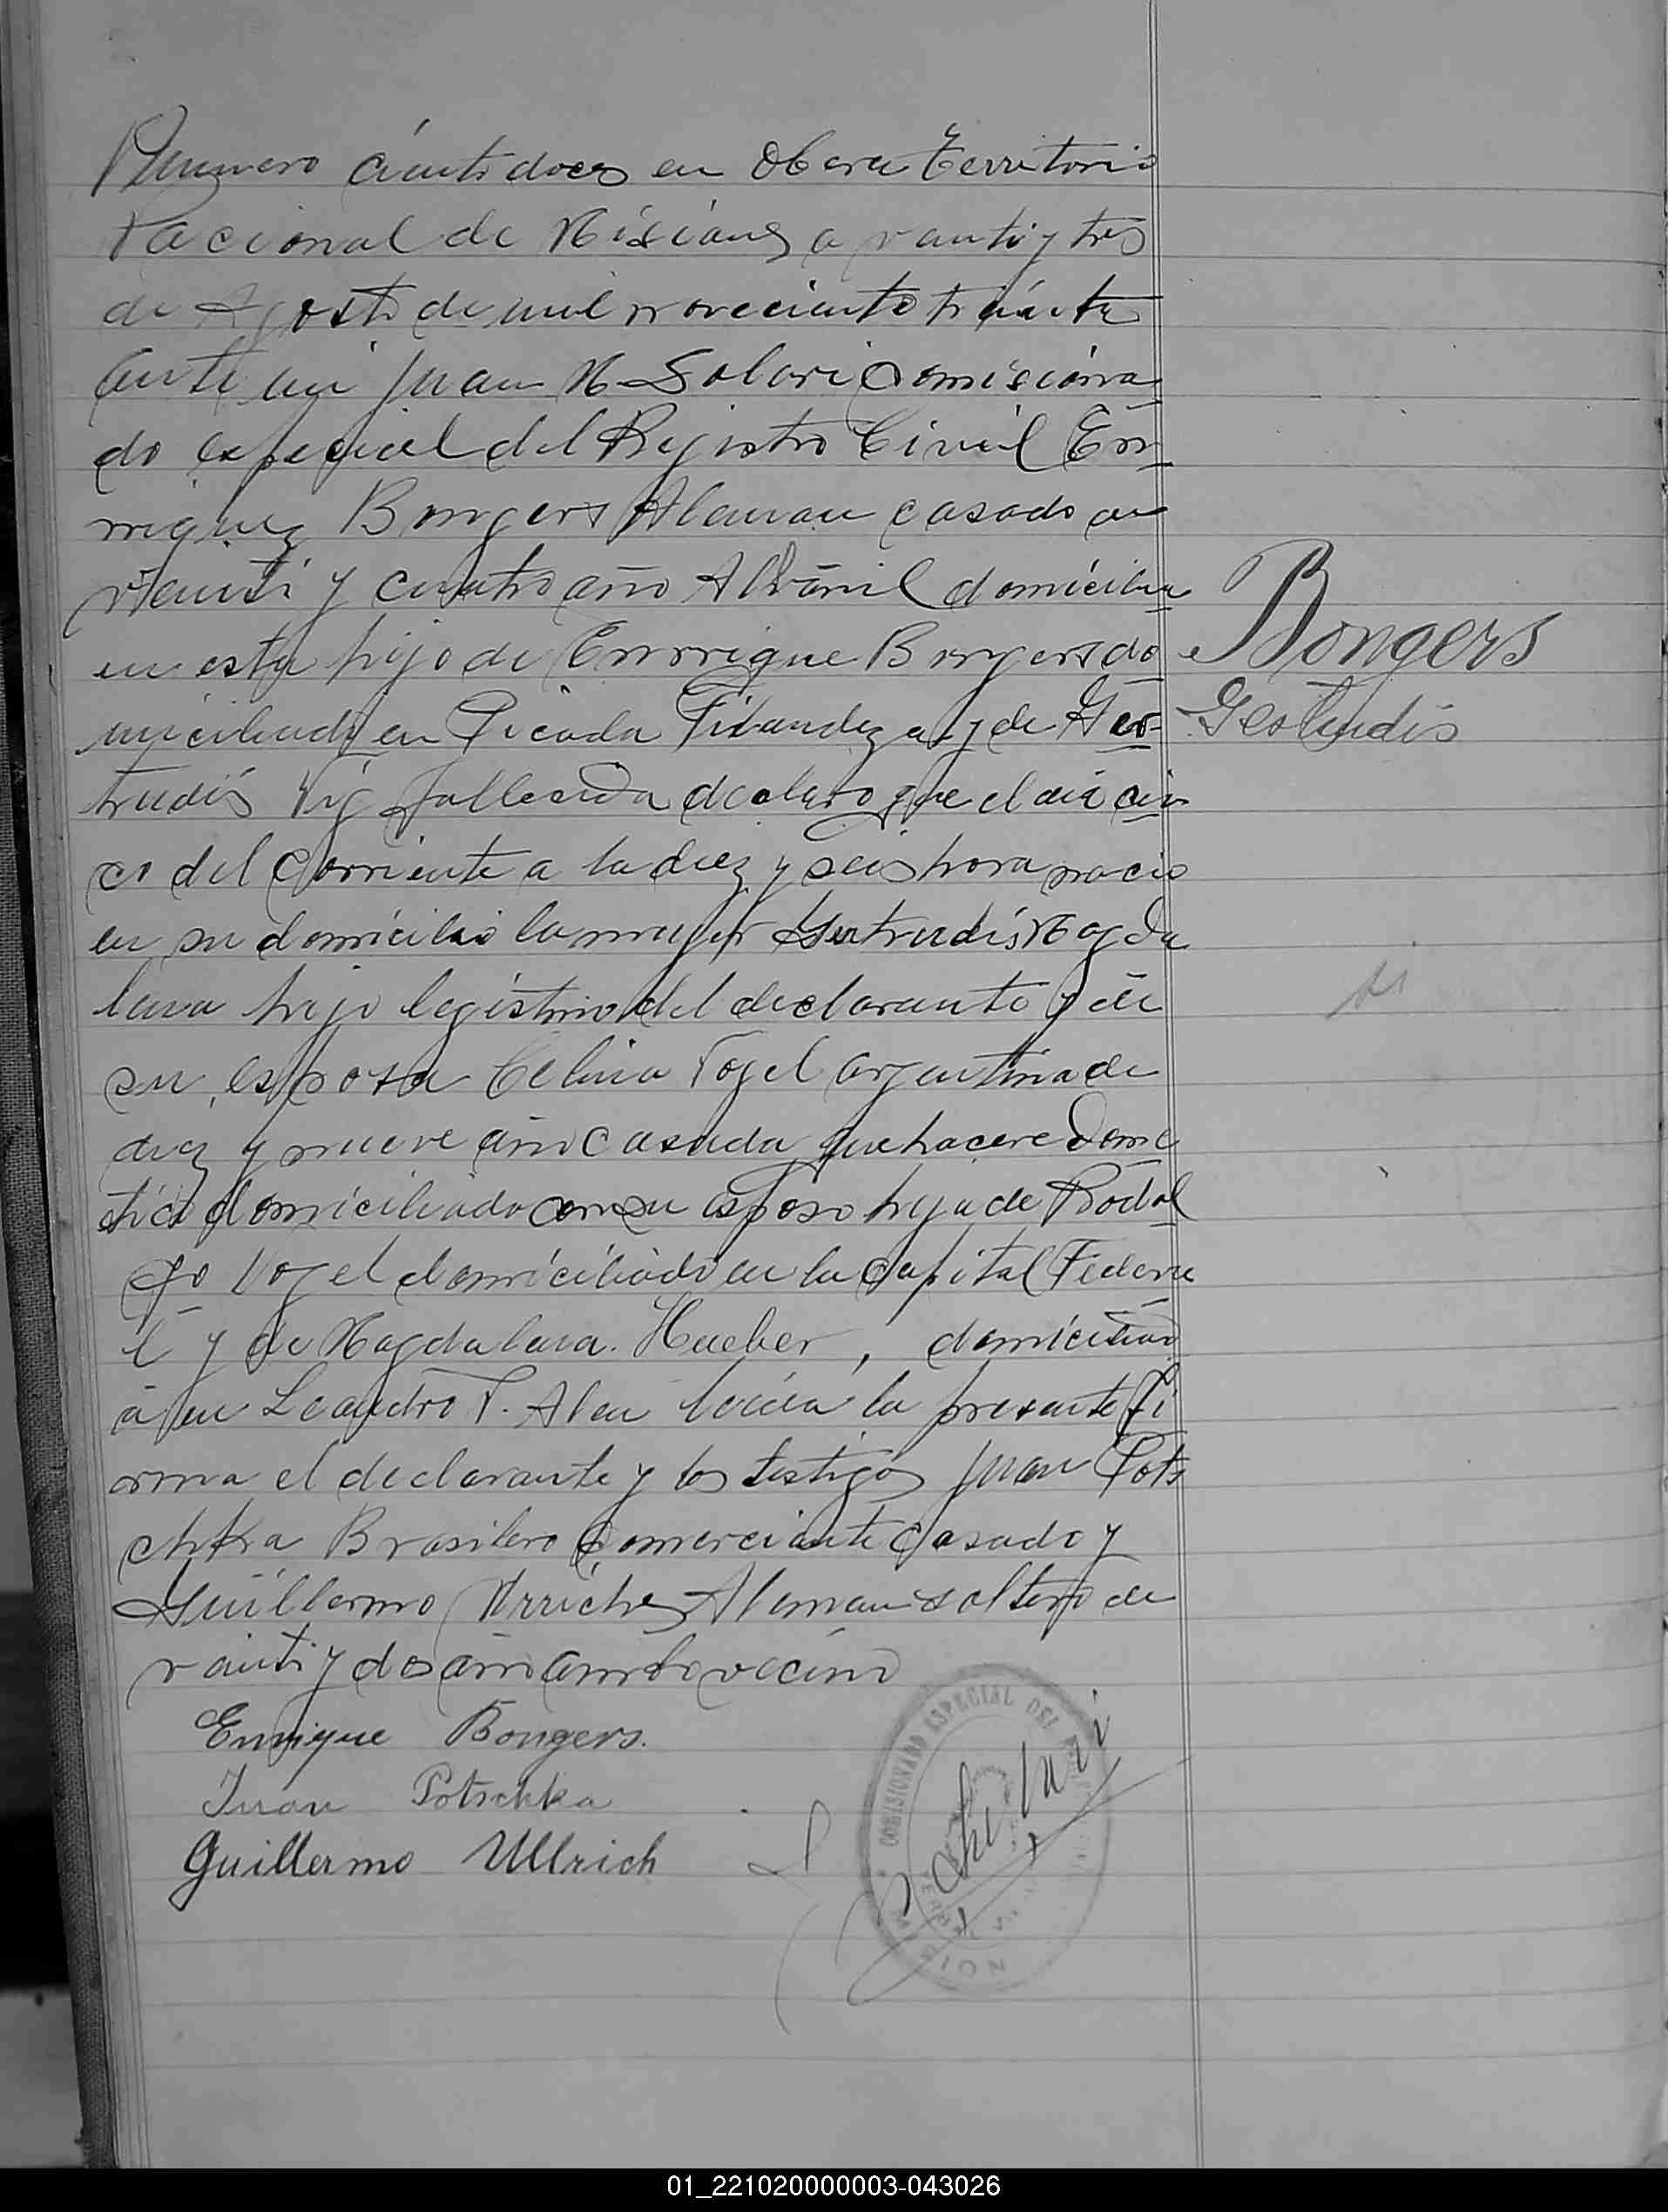 Numero ciento doce en Obera Territorio
Nacional de Misiones a vantiy tres
de Agosto de mil noveciento trainta
ante mi Juan M Solari Comisiona
do especial del Registro Civil En
rrique Bongers Aleman casado de
vainti y cuatro año Albañil domicilia
en esta hijo de Enrrique Bongers do
miciliado en Picada y de Ger
trudis Vig fallesida declaro que el dia cin
co del corriente a la diez y seis hora nacio
en su domicilio la mujer Gertrudis Magda
lana hijo legistimo del declarante y de
su esposa Celina Vogel argentina de
diez y nueve año casada quehacere dome
stico domiciliado con su esposo hija de Rodol
fo Vogel domiciliado en la Capital Federa
l y de Magdalana. Hueber, domicilia
a en Leandro N. Alen la presente fi
rma el declarante y los testigos Juan Pots
chka Brasilero Comerciante Casado y
Guillermo Urriche Aleman soltero de
vainti y dos año ambo vecino
Enrrique Bongers.
Juan Potschka
Guillermo Ullrich
COMISIONADO ESPECIAL DEL
Bongers
Gertrudis
01_221020000003-043026